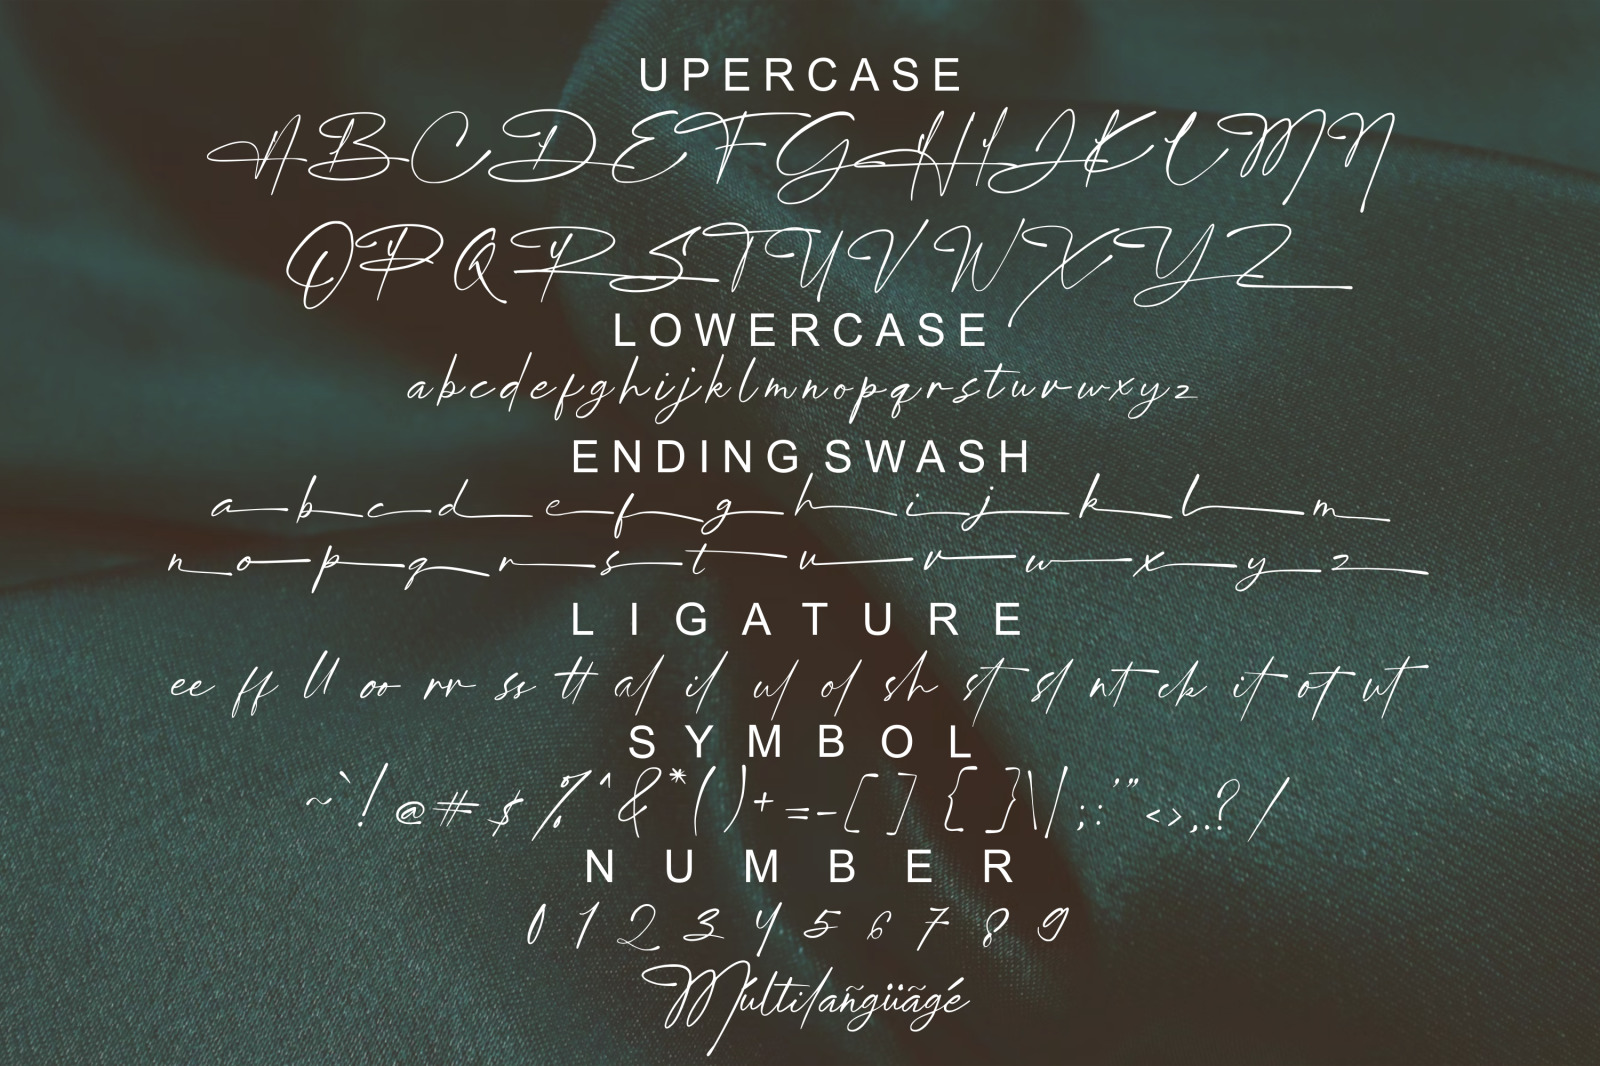 UPERCASE
A B C D E F G H I J K L M N
O P Q R S T U V W X Y Z
LOWERCASE
a b c d e f g h i j k l m n o p q r s t u v w x y z
ENDING SWASH
a b c d e f g h i j k l m
n o p q r s t u v w x y z
LIGATURE
ee ff ll oo rr ss tt al il ul ol sh st sl nt ck it ot ut
SYMBOL
~ ` ! @ # $ % ^ & * ( ) + = - [ ] { } \ | ; : ' " < > , . ? /
NUMBER
0 1 2 3 4 5 6 7 8 9
Multilañgüãgé